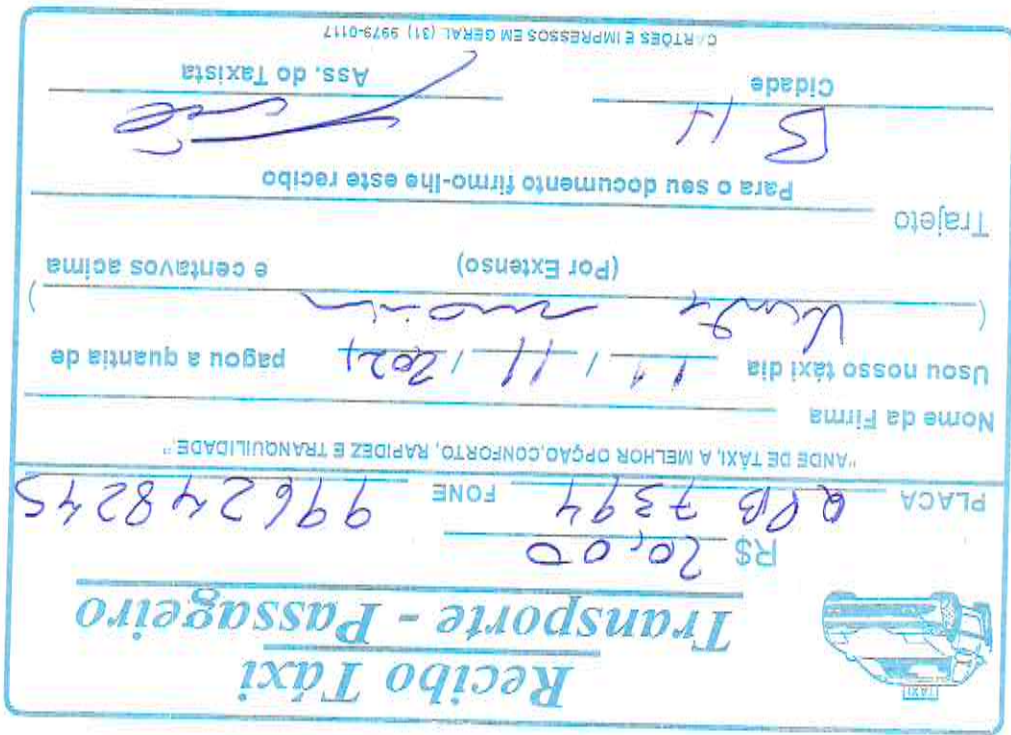 TAXI
Recibo Táxi
Transporte - Passageiro
R$ 20,00
PLACA QPB 7394 FONE 996248245
"ANDE DE TÁXI, A MELHOR OPÇÃO, CONFORTO, RAPIDEZ E TRANQUILIDADE"
Nome da Firma
Usou nosso táxi dia 11 / 11 / 2021 pagou a quantia de
( Vinte )
(Por Extenso) e centavos acima
Trajeto
Para o seu documento firmo-lhe este recibo
BH
Cidade Ass. do Taxista
CARTÕES E IMPRESSOS EM GERAL (31) 9979-0117